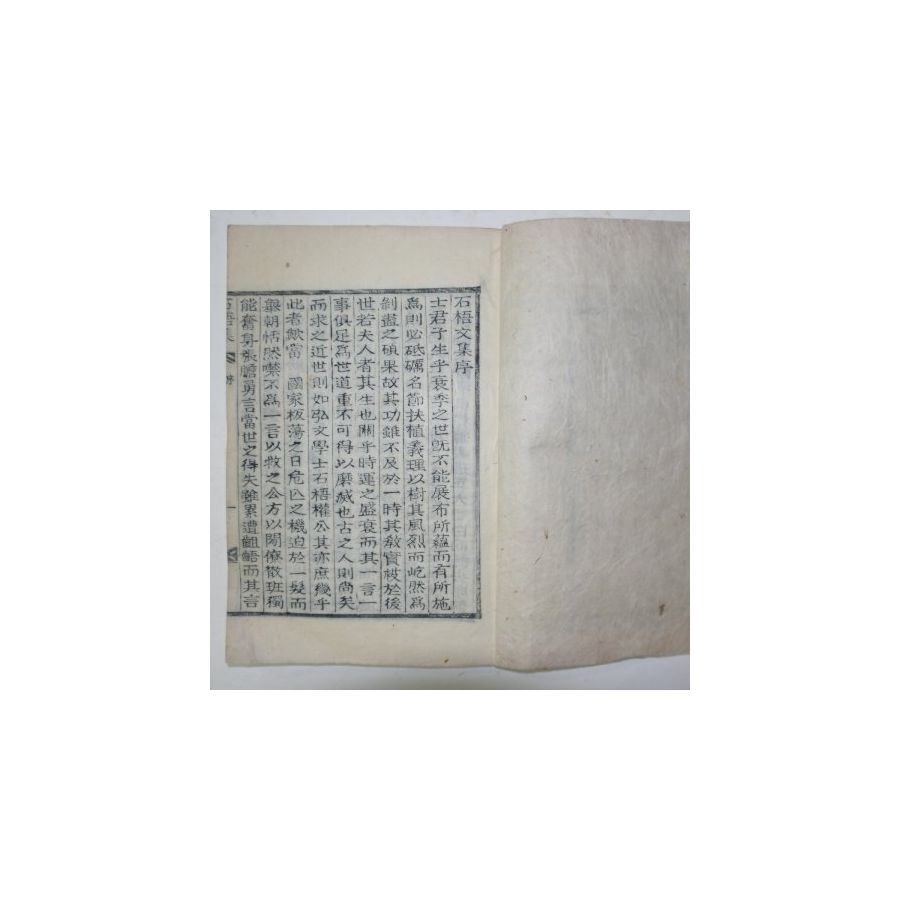 石梧文集序
士君子生乎衰季之世旣不能展布所蘊而有所施
爲則必砥礪名節扶植義理以樹其風烈而屹然爲
剝盡之碩果故其功雖不及於一時其敎實被於後
世若夫人者其生也關乎時運之盛衰而其一言一
事俱足爲世道重不可得以磨滅也古之人則尙矣
而求之近世則如弘文學士石梧權公其亦庶幾乎
此者歟當 國家板蕩之日危亡之機迫於一髮而
擧朝恬然噤不爲一言以救之公方以閒僚散班獨
能奮身張膽昌言當世之得失雖累遭齟齬而其言
石梧集 序 一